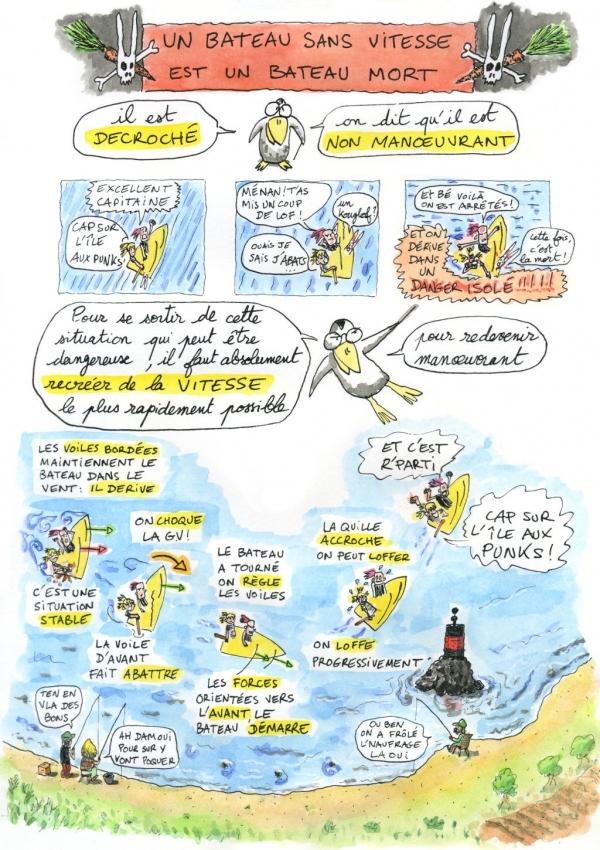 UN BATEAU SANS VITESSE
EST UN BATEAU MORT
il est
DECROCHÉ
on dit qu'il est
NON MANŒUVRANT
EXCELLENT
CAPITAINE
CAP SUR
L'ÎLE
AUX PUNKS
MÉNAN! T'AS
MIS UN COUP
DE LOF!
un
kouglof?
OUAIS JE
SAIS J'ABATS...
ET BÉ VOILÀ
ON EST ARRÊTÉS!
SET ON
DÉRIVE
DANS
UN
DANGER ISOLÉ!!!!!
cette fois,
c'est
la mort!
Pour se sortir de cette
situation qui peut être
dangereuse, il faut absolument
recréer de la VITESSE
le plus rapidement possible
pour redevenir
manœuvrant
LES VOILES BORDÉES
MAINTIENNENT LE
BATEAU DANS LE
VENT: IL DERIVE
C'EST UNE
SITUATION
STABLE
ON CHOQUE
LA GV!
LA VOILE
D'AVANT
FAIT ABATTRE
LE BATEAU
A TOURNÉ
ON RÈGLE
LES VOILES
LES FORCES
ORIENTÉES VERS
L'AVANT, LE
BATEAU DÉMARRE
LA QUILLE
ACCROCHE
ON PEUT LOFFER
ON LOFFE
PROGRESSIVEMENT
ET C'EST
R'PARTI
CAP SUR
L'ÎLE AUX
PUNKS!
TEN EN
V'LA DES
BONS
AH DAM OUI
POUR SUR Y
VONT POQUER
OU BEN
ON A FRÔLÉ
L'NAUFRAGE
LA OUI